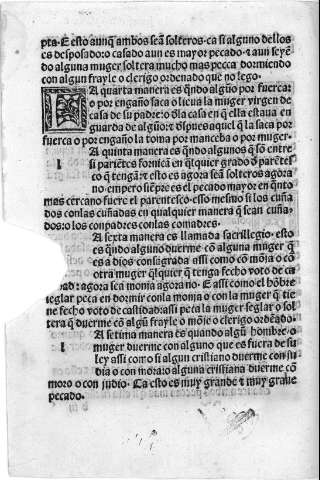 pta. E esto aunq̃ ambos seã solteros. ca si alguno dellos
es desposado: o casado aun es mayor pecado. ⁊ aun seyẽ-
do alguna muger soltera mucho mas pecca dormiendo
con algun frayle o clerigo ordenado que no lego.
LA quarta manera es qñdo algũo por fuerca:
o por engaño saca o lieua la muger virgen de
casa de su padre: o d̃la casa en q̃ ella estaua en
guarda de algũo: ⁊ d̃spues aquel q̃ la saca por
fuerca o por engaño la toma por manceba o por muger.
A quinta manera es qñdo algunos q̃ sõ entre
l si pariẽtes fornicã en q̃lquier grado d̃ parẽtes-
co q̃ tengã: ⁊ esto es agora seã solteros agora
no. empero siẽpre es el pecado mayor en q̃nto
mas cercano fuere el parentesco. esso mesmo si los cuña
dos con las cuñadas en qualquier manera q̃ sean cuña-
dos: o los conpadres con las comadres.
A sexta manera es llamada sacrillegio. esto
es qñdo alguno duerme cõ alguna muger q̃
es a dios consagrada assi como cõ mõja o cõ
otra muger q̃lquier q̃ tenga fecho voto de ca
dad: agora sea monja agora no. E assi como el hõbre
seglar peca en dormir con la monja o con la muger q̃ tie
ne fecho voto de castidad: assi peca la muger seglar o sol
tera q̃ duerme cõ algũ frayle o mõje o clerigo ordẽado.
A setima manera es quando algũ hombre o
l muger duerme con alguno que es fuera de su
ley assi como si algun cristiano duerme con ju
dia o con mora: o alguna cristiana duerme cõ
moro o con judio. Ca esto es muy grande ⁊ muy graue
pecado.